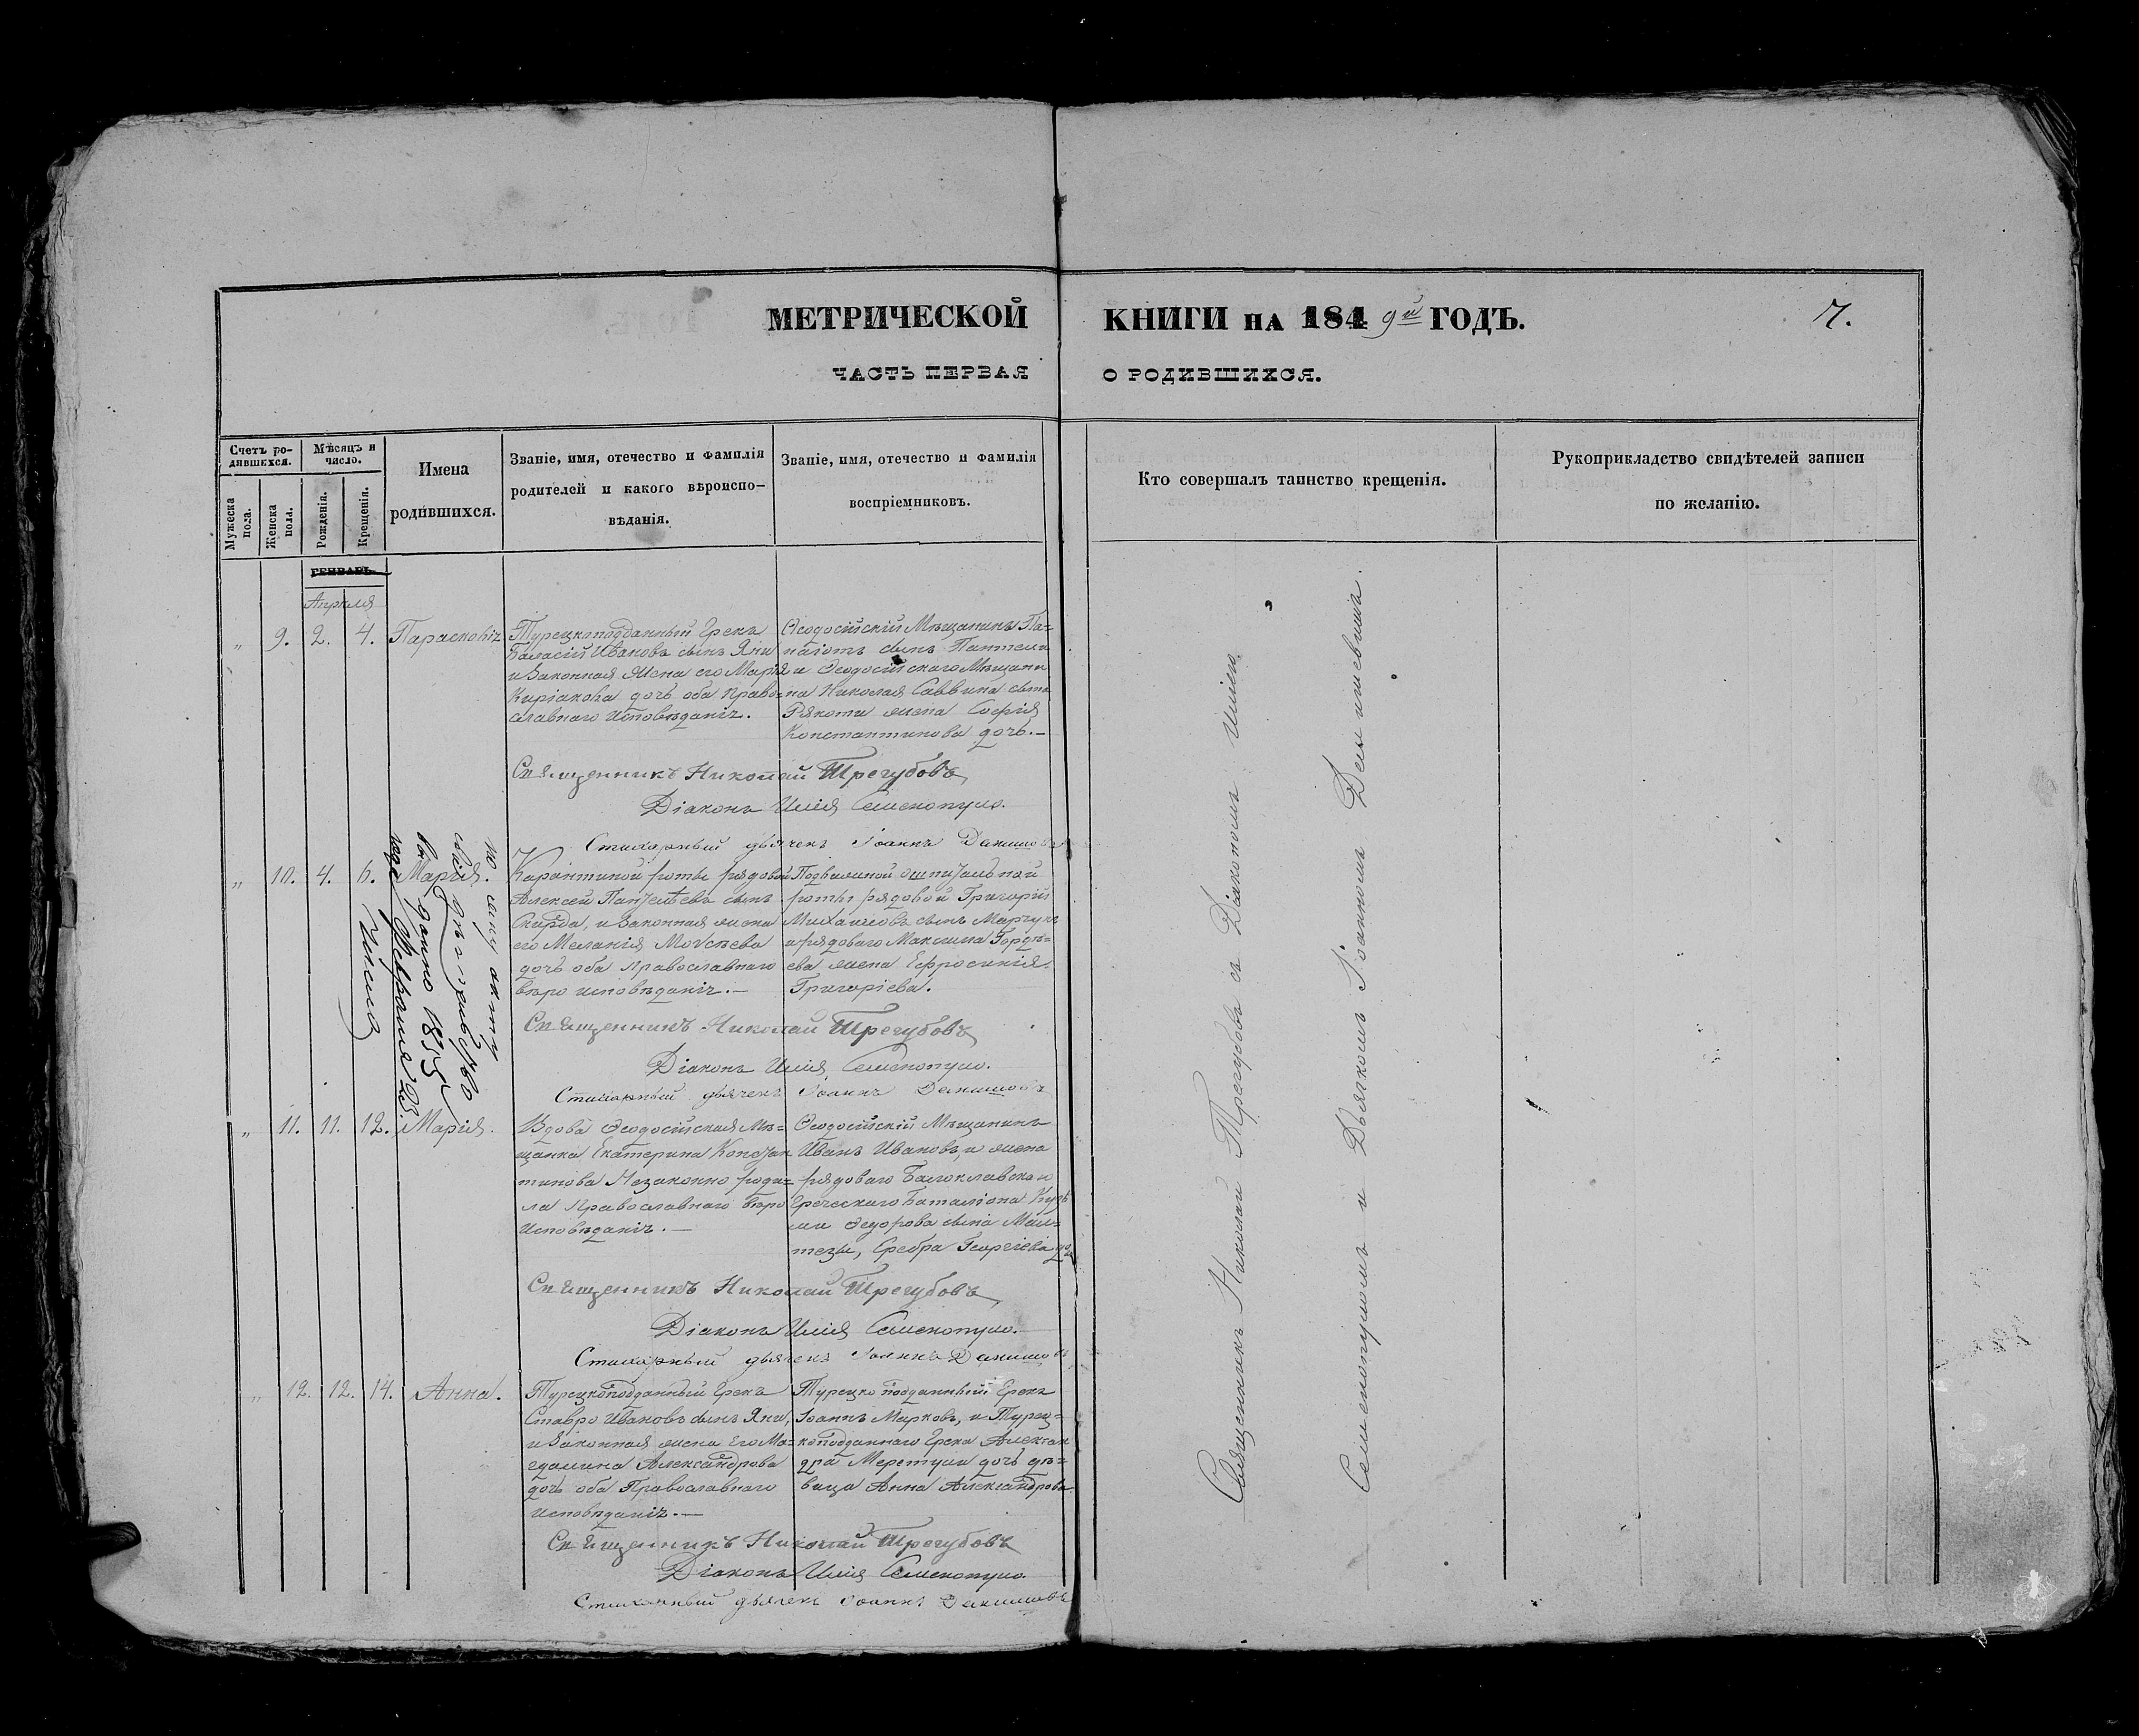 МЕТРИЧЕСКОЙ КНИГИ НА 1849й ГОДЪ.
7.
ЧАСТЬ ПЕРВАЯ О РОДИВШИХСЯ.
Счетъ ро-
дившихся.
Мужеска
пола.
Женска
пола.
Мѣсяцъ и
число.
Рожденія.
Крещенія.
Имена
родившихся.
Званіе, имя, отечество и фамилія
родителей и какого вѣроиспо-
вѣданія.
Званіе, имя, отечество и фамилія
воспріемниковъ.
Кто совершалъ таинство крещенія.
Рукоприкладство свидѣтелей записи
по желанію.
ГЕНВАРЬ
Апреля
„ 9. 2. 4. Парасковія
Турецкоподданный Грекъ
Баласій Ивановъ сынъ Яни
и Законная Жена его Марія
Киріакова дочь оба право-
славнаго исповѣданія.
Ѳеодосійскій Мѣщанинъ Па-
наіотъ сынъ Пантели
и Ѳеодосійскаго Мѣщани
на Николая Саввина сына
жена Софія
Константинова дочь.—
Священникъ Николай Трегубовъ
Діаконъ Илія Семенопуло.
Стихарный дьячекъ Іоаннъ Данишовъ
„ 10. 4. 6. Марія.
Карантиной роты рядовой
Алексей Пантелѣевъ сынъ
Скирда, и Законная жена
его Меланія Моѵсѣева
дочь оба Православнаго
вѣро исповѣданія.—
Подвижной Ошпитальной
роты рядовой Григорій
Михаиловъ сынъ Марчукъ
и рядоваго Максима Гордѣ-
ева жена Ефросинія
Григоріева.
по сему акту
свидѣтельство
дано 1855
года Февраля 23.
числа
Священникъ Николай Трегубовъ
Діаконъ Илія Семенопуло.
Стихарный дьячекъ Іоаннъ Данишовъ
„ 11. 11. 12. Марія.
Вдова Ѳеодосійская Мѣ-
щанка Екатерина Констан
тинова Незаконно роди-
ла Православнаго вѣро
исповѣданія.—
Ѳеодосійскій Мѣщанинъ
Иванъ Ивановъ, и жена
рядоваго Балоклавскаго
Греческаго Баталіона Кузь
мы Ѳедорова сына Мал-
тезы, Ережра Георгіева до
Священникъ Николай Трегубовъ
Діаконъ Илія Семенопуло.
Стихарный дьячекъ Іоаннъ Данишовъ
„ 12. 12. 14. Анна.
Турецкоподданный Грекъ
Ставро Ивановъ сынъ Яни,
и Законная жена Его Ма-
гдалина Александрова
дочь оба Православнаго
исповѣданія.—
Турецко подданный Грекъ
Іоаннъ Марковъ, и Турец-
коподданнаго Грека Алексан
дра дочь дѣ-
вица Анна Александрова
Священникъ Николай Трегубовъ
Діаконъ Илія Семенопуло.
Стихарный дьячекъ Іоаннъ Данишовъ
Священникъ Николай Трегубовъ съ Діакономъ Иліею
Семенопуломъ и Дьячкомъ Іоанномъ